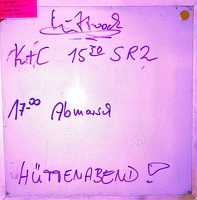 Mittwoch
K+C 15³⁰ SR2
17⁰⁰ Abmarsch
HÜTTENABEND!